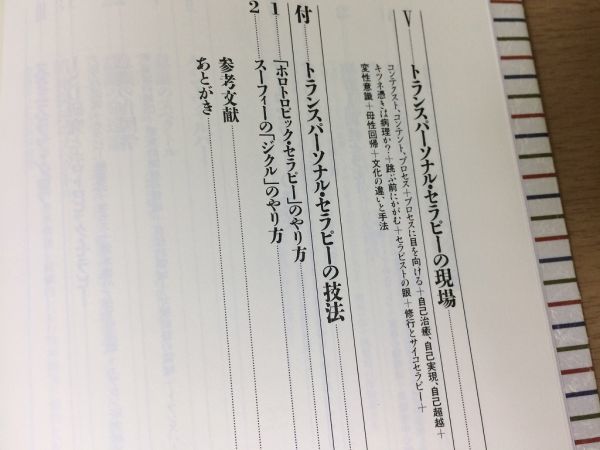 V トランスパーソナル・セラピーの現場
コンテクスト、コンテント、プロセス+プロセスに目を向ける+自己治癒、自己実現、自己超越+
キツネ憑きは病理か?+跳ぶ前にかがむ+セラピストの眼+修行とサイコセラピー+
変性意識+母性回帰+文化の違いと手法
付 トランスパーソナル・セラピーの技法
1 「ホロトロピック・セラピー」のやり方
2 スーフィーの「ジクル」のやり方
参考文献
あとがき